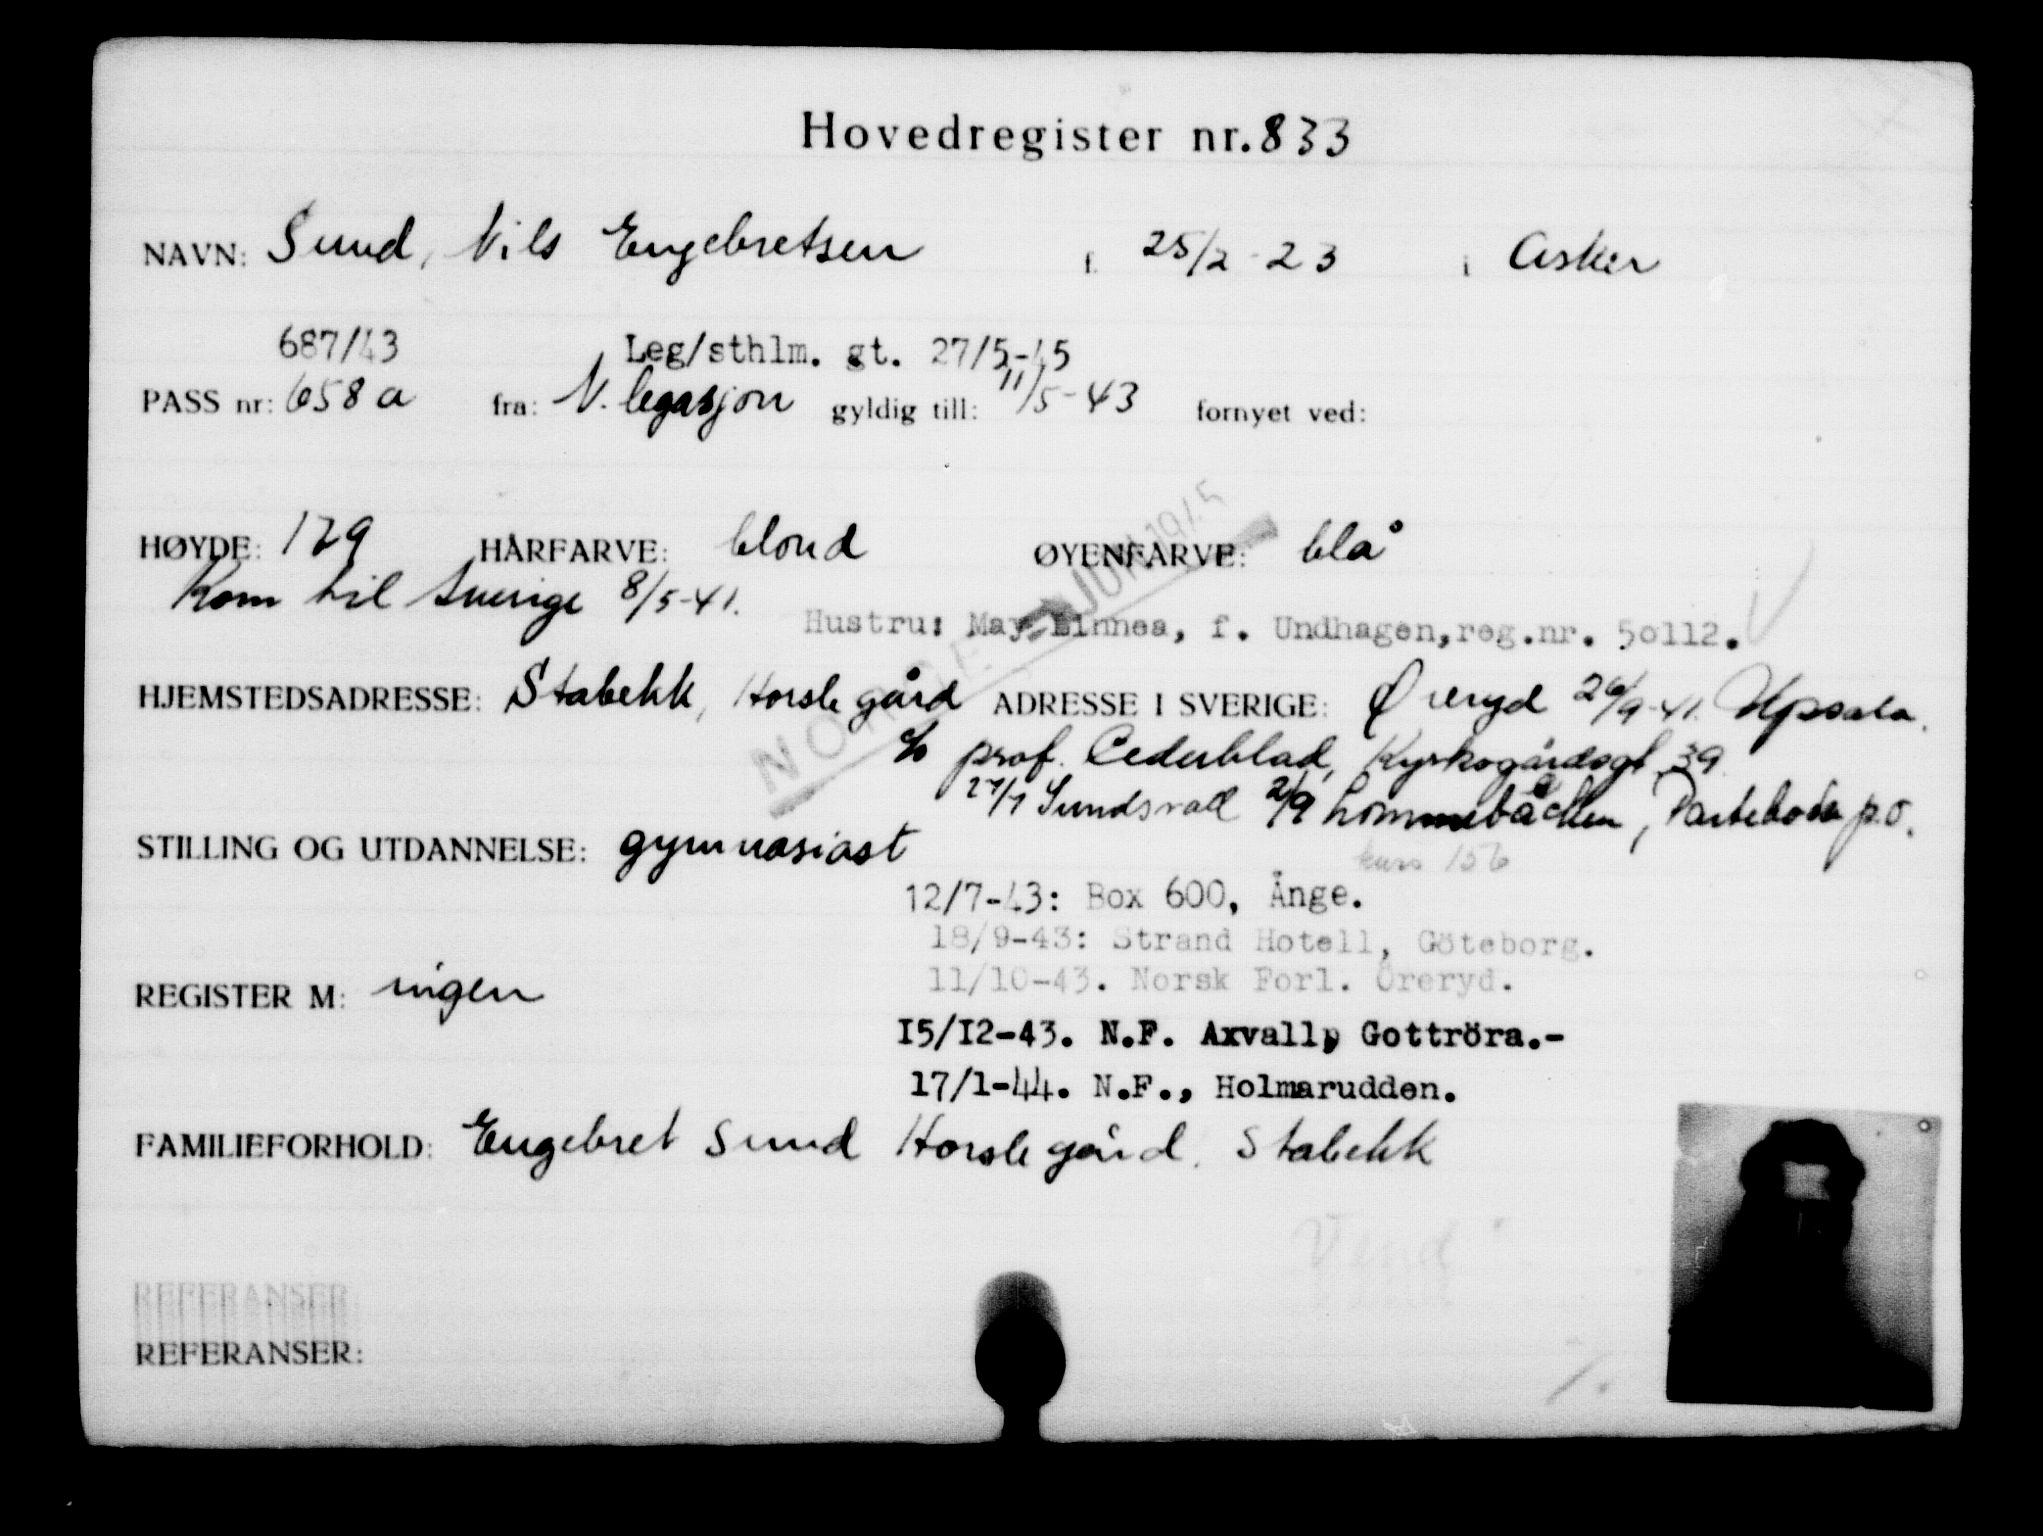 Hovedregister nr. 833
NAVN: Sund, Nils Engebretsen f. 25/2-23 i Asker
687/43 Leg/sthlm. gt. 27/5-45
PASS nr: 658 a fra: N. legasjon gyldig till: 11/5-43 fornyet ved:
HØYDE: 179 HÅRFARVE: blond ØYENFARVE: blå
Kom til Sverige 8/5-41.
Hustru: May Linnea, f. Undhagen, reg.nr. 50112.
NORGE JUNI 1945
HJEMSTEDSADRESSE: Stabekk, Horsle gård ADRESSE I SVERIGE: Øreryd 26/9-41. Uppsala.
c/o prof. Cederblad, Kyrkogårdsgt 39
27/7 Sundsvall 2/9 Lommebäcken, Parteboda p.o.
STILLING OG UTDANNELSE: gymnasiast
156
12/7-43: Box 600, Ånge.
18/9-43: Strand Hotell, Göteborg.
REGISTER M: ingen
11/10-43. Norsk Forl. Öreryd.
15/12-43. N.F. Axvall, Gottröra.-
17/1-44. N.F., Holmarudden.
FAMILIEFORHOLD: Engebret Sund Horsle gård, Stabekk
Vend
REFERANSER
REFERANSER: